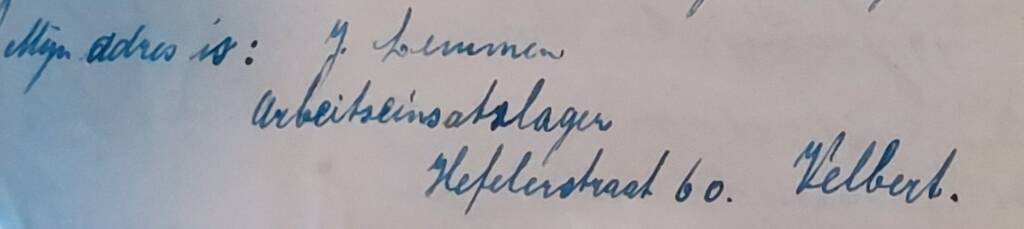 Mijn adres is: J. Lemmen
Arbeitseinsatslager
Hefelerstraat 60. Velbert.